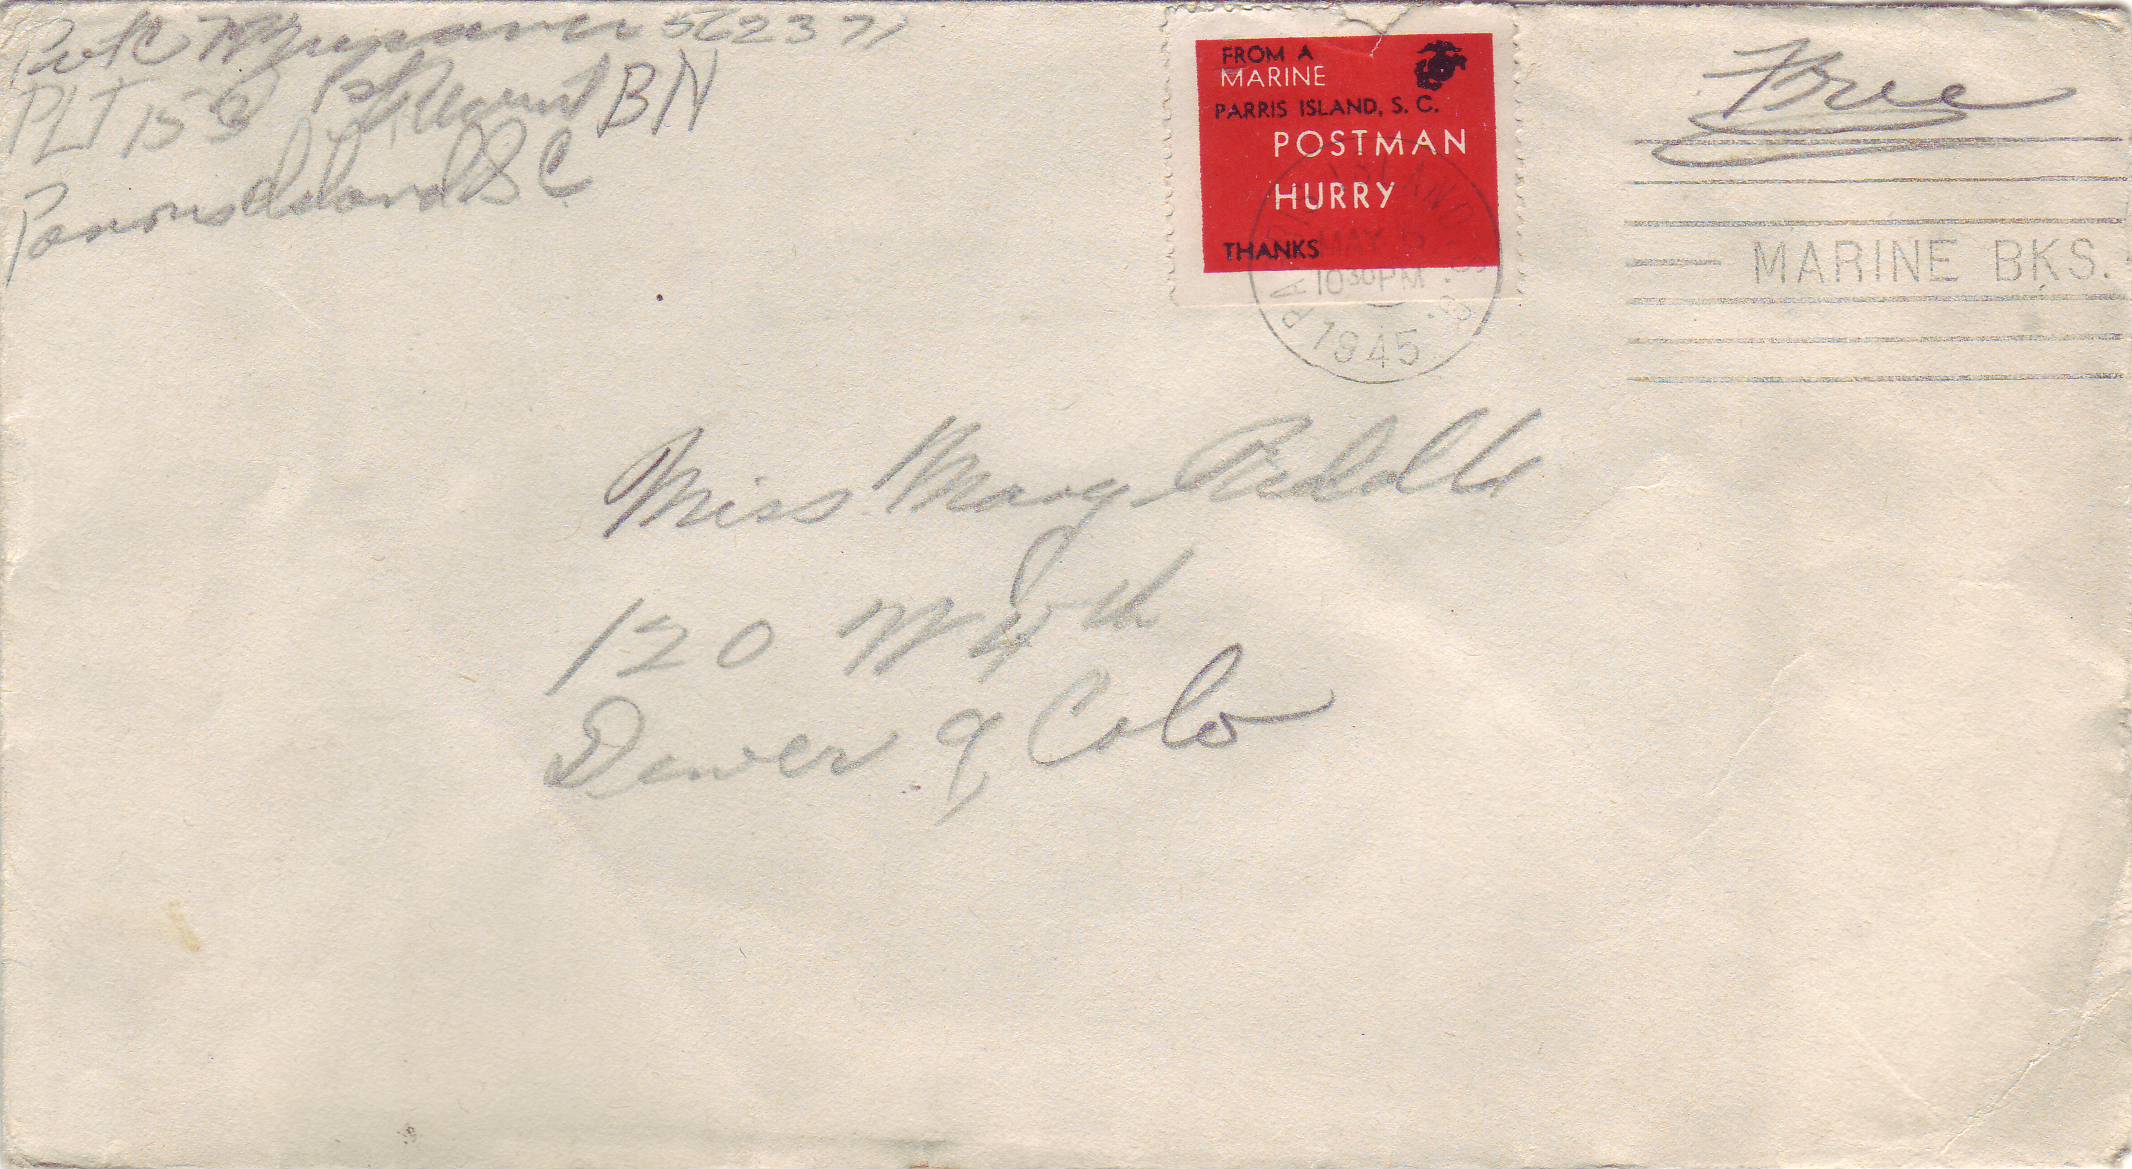 562371
PLT 153 1st Recruit BN
Parris Island S C
FROM A
MARINE
PARRIS ISLAND, S. C.
POSTMAN
HURRY
THANKS
PARRIS ISLAND S.C.
MAY
10 30 PM
1945
Free
MARINE BKS.
Miss Mary Riddle
120 W 4th
Denver 9 Colo